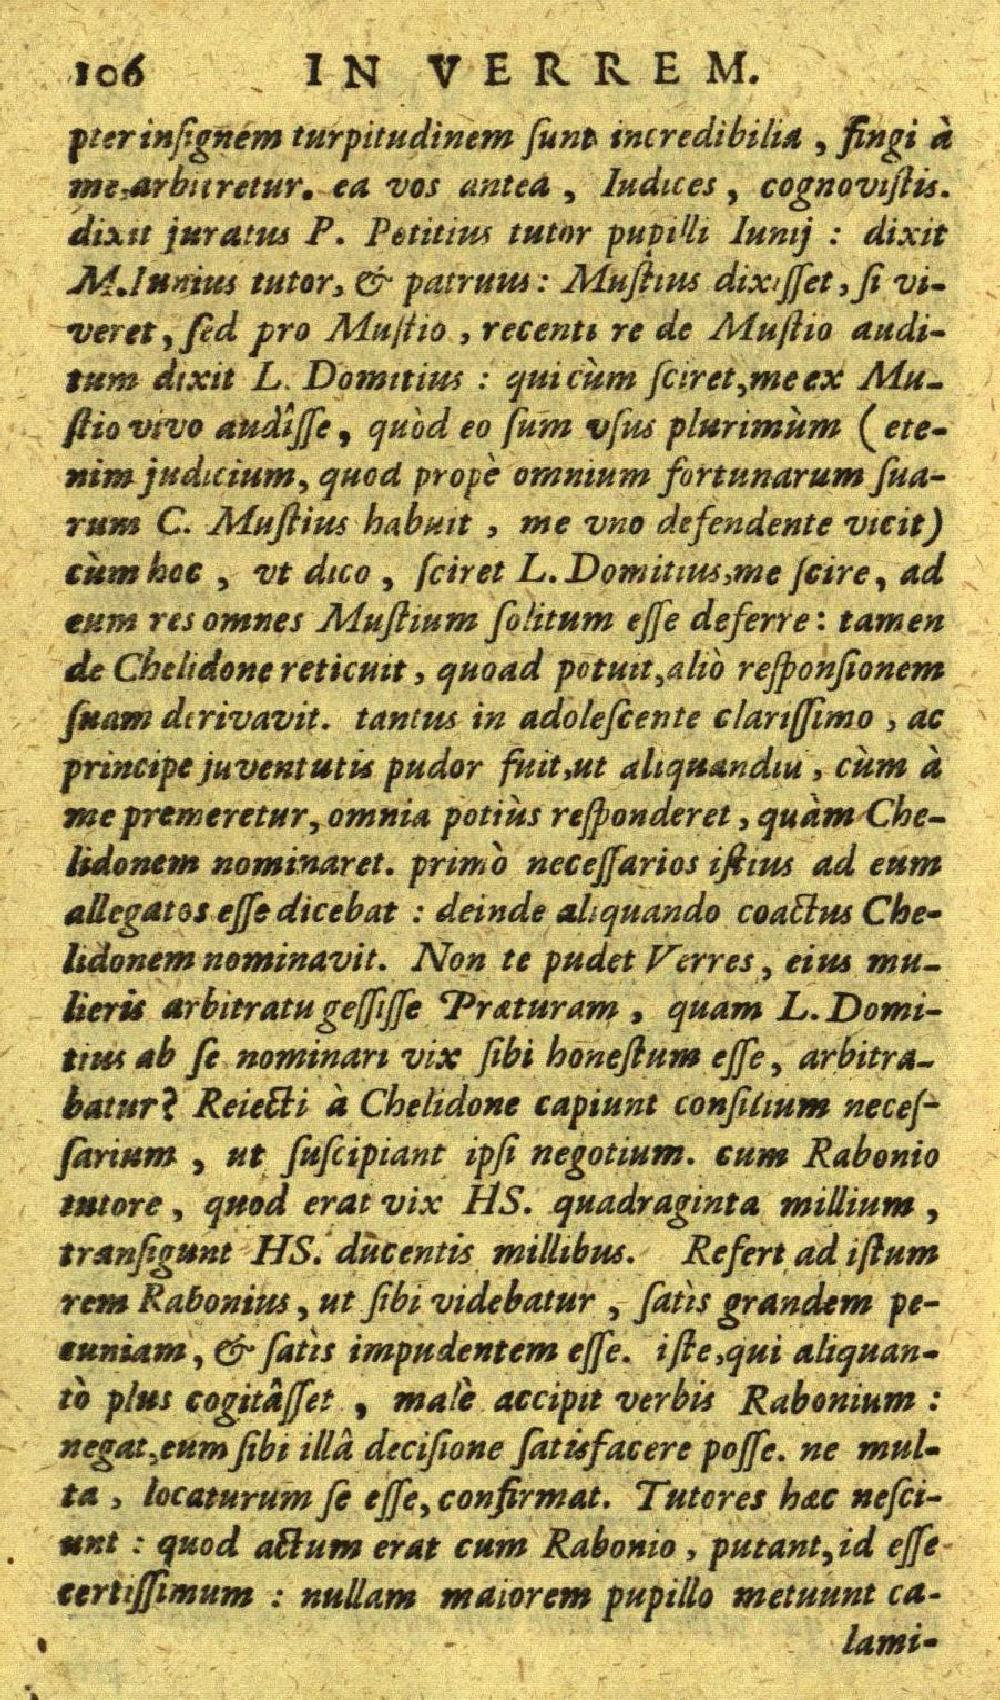 106 IN VERREM.
pter insignem turpitudinem sunt incredibilia, fingi à
me arbitretur. ea vos antea, Iudices, cognovistis.
dixit juratus P. Petitius tutor pupilli Iunij : dixit
M. Iunius tutor, & patruus : Mustius dixisset, si vi-
veret, sed pro Mustio, recenti re de Mustio audi-
tum dixit L. Domitius : qui cùm sciret, me ex Mu-
stio vivo audîsse, quòd eo sum vsus plurimùm (ete-
nim judicium, quod propè omnium fortunarum sua-
rum C. Mustius habuit, me vno defendente vicit)
cùm hoc, vt dico, sciret L. Domitius, me scire, ad
eum res omnes Mustium solitum esse deferre : tamen
de Chelidone reticuit, quoad potuit, aliò responsionem
suam derivavit. tantus in adolescente clarissimo, ac
principe juventutis pudor fuit, ut aliquandiu, cùm à
me premeretur, omnia potiùs responderet, quàm Che-
lidonem nominaret. primò necessarios istius ad eum
allegatos esse dicebat : deinde aliquando coactus Che-
lidonem nominavit. Non te pudet Verres, eius mu-
lieris arbitratu gessisse Præturam, quam L. Domi-
tius ab se nominari vix sibi honestum esse, arbitra-
batur? Reiecti à Chelidone capiunt consilium neces-
sarium, ut suscipiant ipsi negotium. cum Rabonio
tutore, quod erat vix HS. quadraginta millium,
transigunt HS. ducentis millibus. Refert ad istum
rem Rabonius, ut sibi videbatur, satìs grandem pe-
cuniam, & satìs impudentem esse. iste, qui aliquan-
tò plus cogitâsset, malè accipit verbis Rabonium :
negat, eum sibi illâ decisione satisfacere posse. ne mul-
ta, locaturum se esse, confirmat. Tutores hæc nesci-
unt : quod actum erat cum Rabonio, putant, id esse
certissimum : nullam maiorem pupillo metuunt ca-
lami-